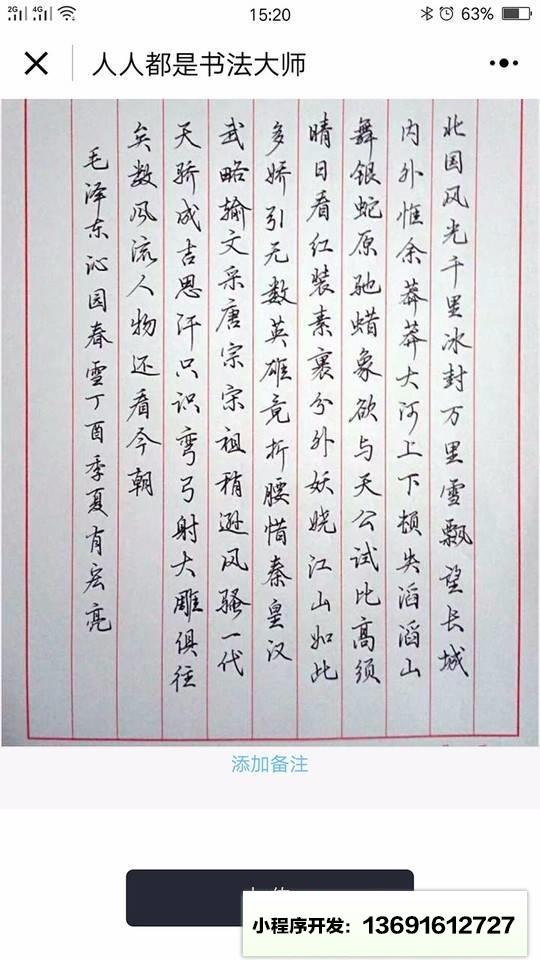 2G 4G 15:20 63%
人人都是书法大师
北国风光千里冰封万里雪飘望长城
内外惟余莽莽大河上下顿失滔滔山
舞银蛇原驰蜡象欲与天公试比高须
晴日看红装素裹分外妖娆江山如此
多娇引无数英雄竞折腰惜秦皇汉
武略输文采唐宗宋祖稍逊风骚一代
天骄成吉思汗只识弯弓射大雕俱往
矣数风流人物还看今朝
毛泽东沁园春雪丁酉季夏有宏亮
添加备注
小程序开发：13691612727